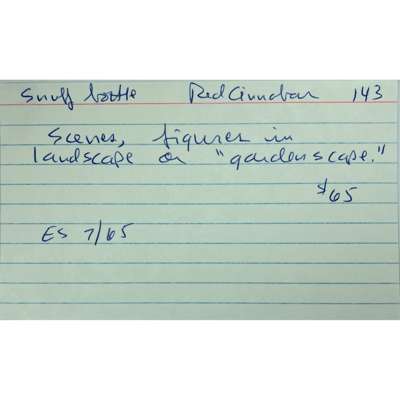 Snuff bottle Red Cinnabar 143
Scenes, figures in
landscape or "gardenscape."
$65
ES 7/65